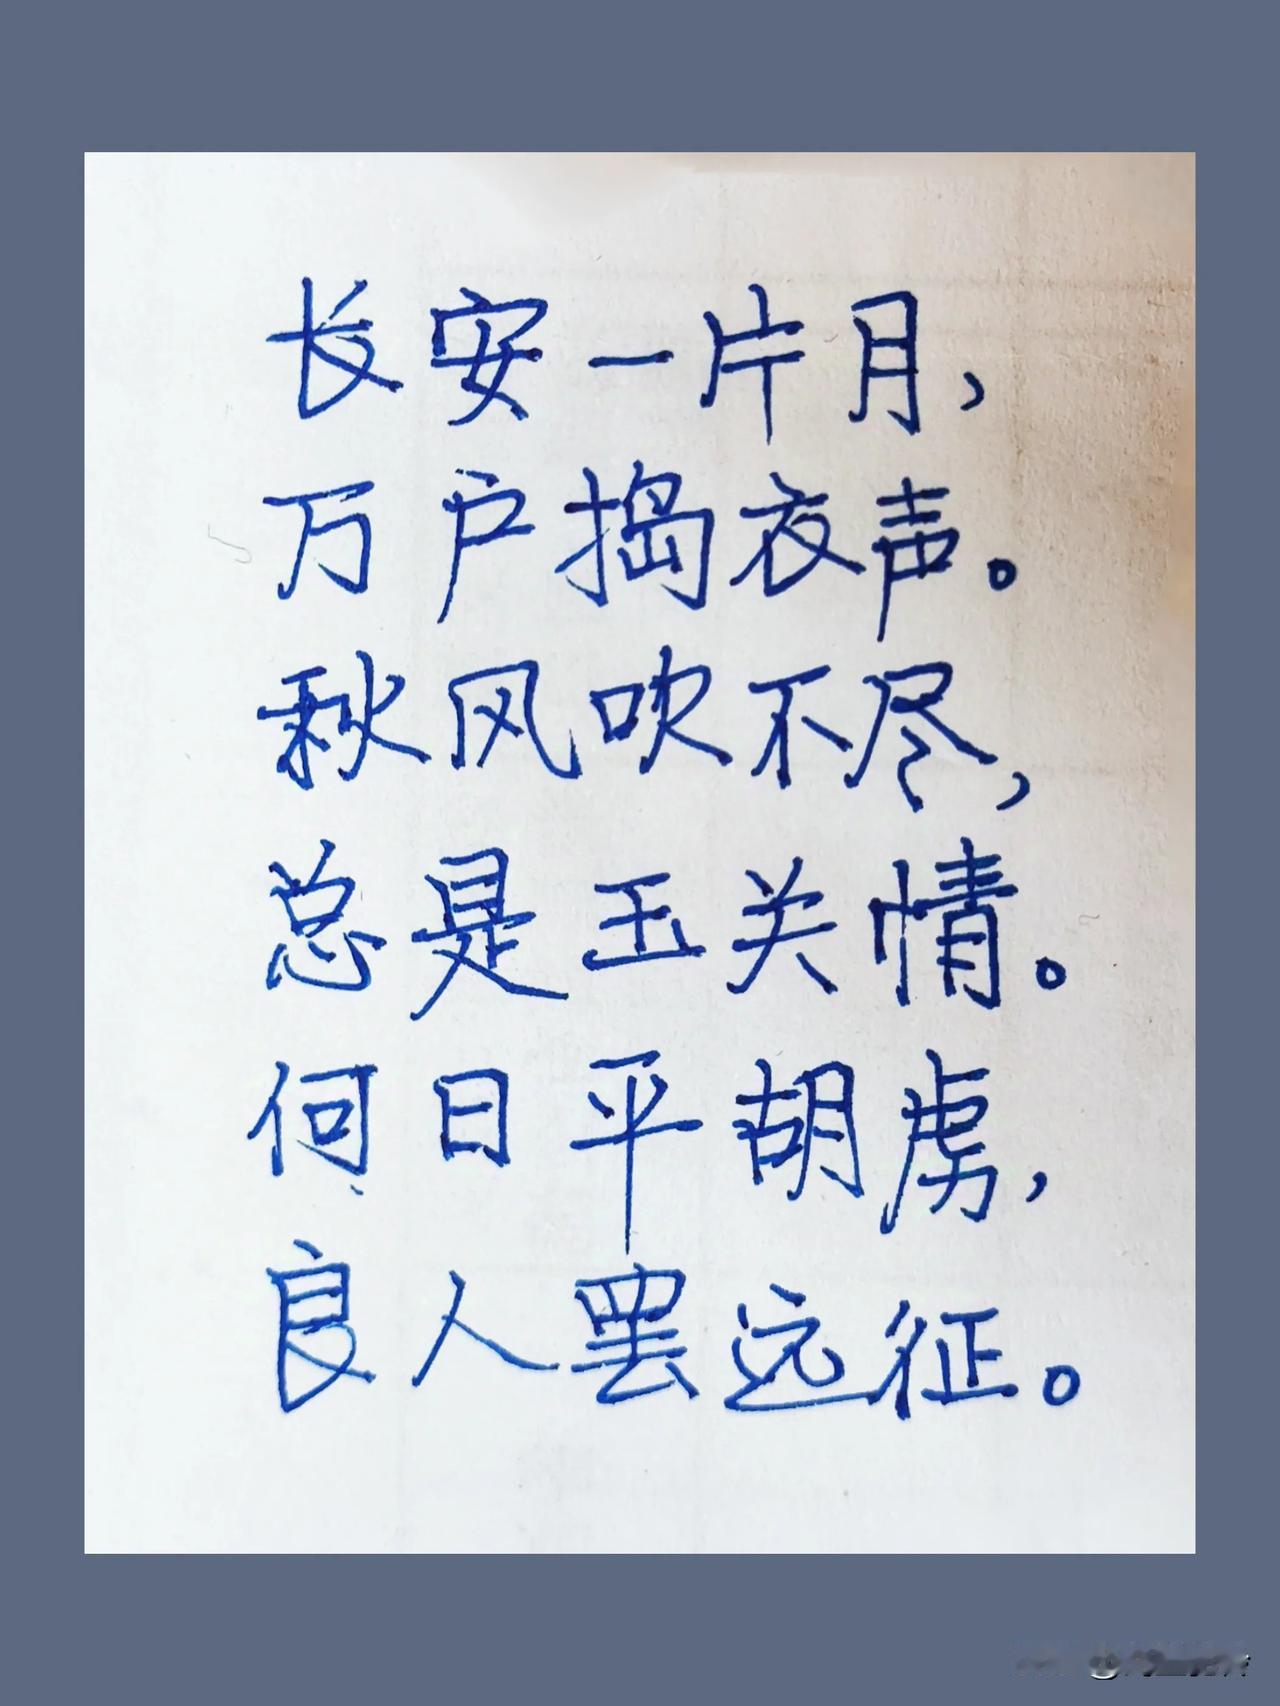 长安一片月，
万户捣衣声。
秋风吹不尽，
总是玉关情。
何日平胡虏，
良人罢远征。